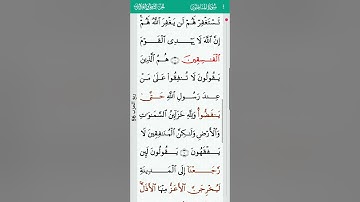 سورة المنافقون
تَسْتَغْفِرْ لَهُمْ لَن يَغْفِرَ ٱللَّهُ لَهُمْ
إِنَّ ٱللَّهَ لَا يَهْدِى ٱلْقَوْمَ
ٱلْفَـٰسِقِينَ ۝ هُمُ ٱلَّذِينَ
يَقُولُونَ لَا تُنفِقُوا۟ عَلَىٰ مَنْ
عِندَ رَسُولِ ٱللَّهِ حَتَّىٰ
يَنفَضُّوا۟ وَلِلَّهِ خَزَآئِنُ ٱلسَّمَـٰوَٰتِ
وَٱلْأَرْضِ وَلَـٰكِنَّ ٱلْمُنَـٰفِقِينَ لَا
يَفْقَهُونَ ۝ يَقُولُونَ لَئِن
رَّجَعْنَآ إِلَى ٱلْمَدِينَةِ
لَيُخْرِجَنَّ ٱلْأَعَزُّ مِنْهَا ٱلْأَذَلَّ
ربع الحزب 56